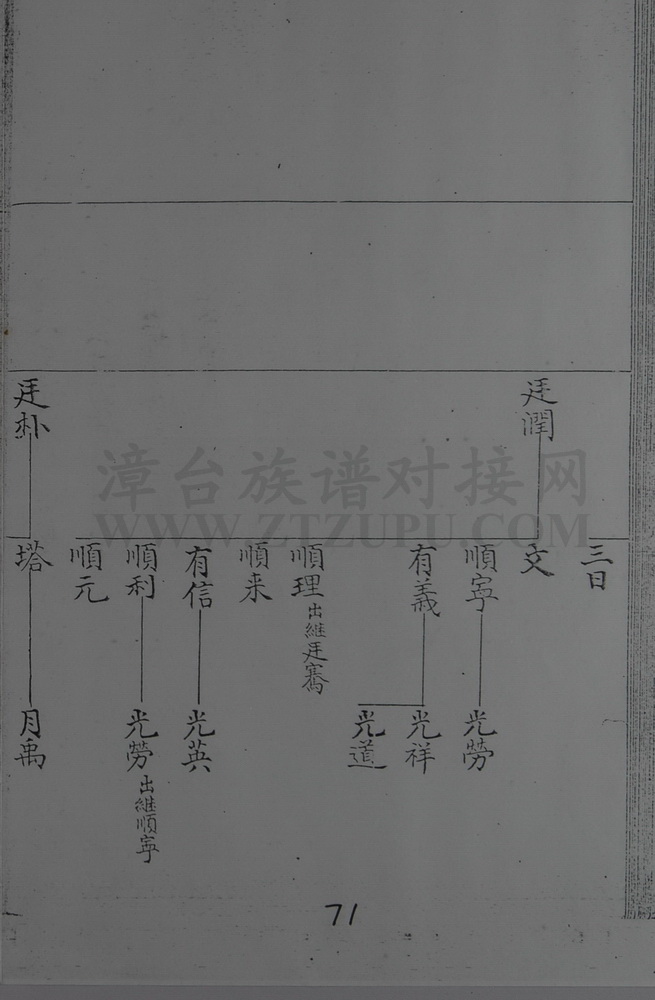 三日
廷潤
文
順寧
光勞
有義
光祥
光道
順理 出繼廷騫
順来
有信
光英
順利
光勞 出繼順寧
順元
廷朴
塔
月禹
71
漳台族谱对接网
WWW.ZTZUPU.COM